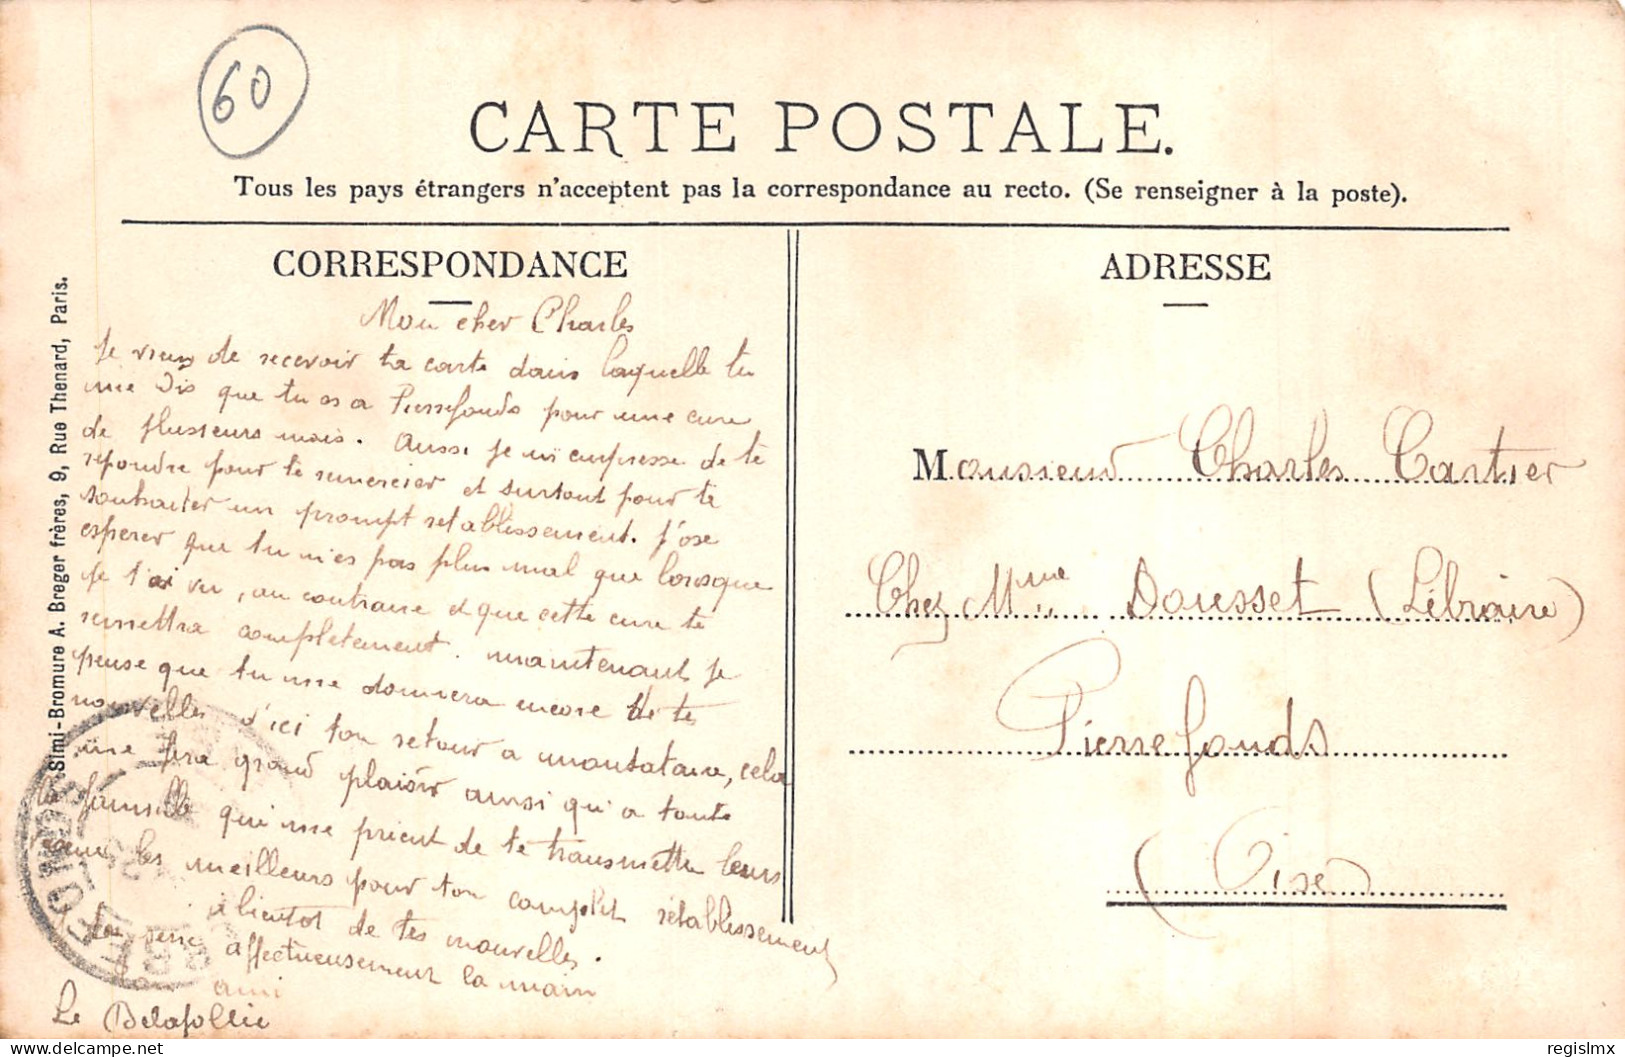 60
CARTE POSTALE.
Tous les pays étrangers n'acceptent pas la correspondance au recto. (Se renseigner à la poste).
CORRESPONDANCE
Mon cher Charles
Je viens de recevoir ta carte dans laquelle tu
me dis que tu es a Pierrefonds pour une cure
de plusieurs mois. Aussi je m'empresse de te
repondre pour te remercier et surtout pour te
souhaiter un prompt retablissement. J'ose
esperer que tu n'es pas plus mal que lorsque
je t'ai vu, au contraire et que cette cure te
remettra completement. maintenant je
pense que tu me donnera encore de te
nouvelles d'ici ton retour a montataire, cela
me fera grand plaisir ainsi qu'a toute
la famille qui me prient de te transmettre leurs
les meilleurs pour ton complet rétablissement
a bientot de tes nouvelles.
affectueusement la main
ami
Simi-Bromure A. Breger frères, 9, Rue Thenard, Paris.
ADRESSE
Monsieur Charles Cartier
Chez Mme Dousset (Libraire)
Pierrefonds
(Oise)
delcampe.net
regislmx